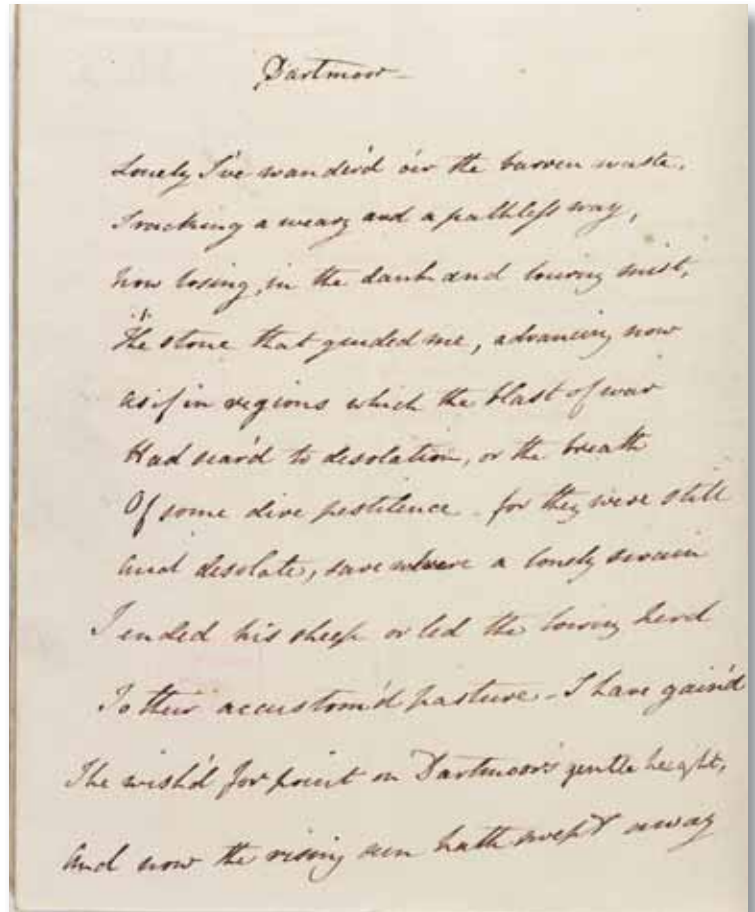 Dartmoor
Lonely I've wander'd o'er the barren waste,
Tracking a weary and a pathless way,
Now losing, in the dank and louring mist,
The stone that guided me, advancing now
As if in regions which the blast of war
Had sear'd to desolation, or the breath
Of some dire pestilence - for they were still
And desolate, save where a lonely swain
Tended his sheep or led the lowing herd
To their accustom'd pasture - I have gain'd
The wish'd for point on Dartmoor's gentle height,
And now the rising sun hath swept away